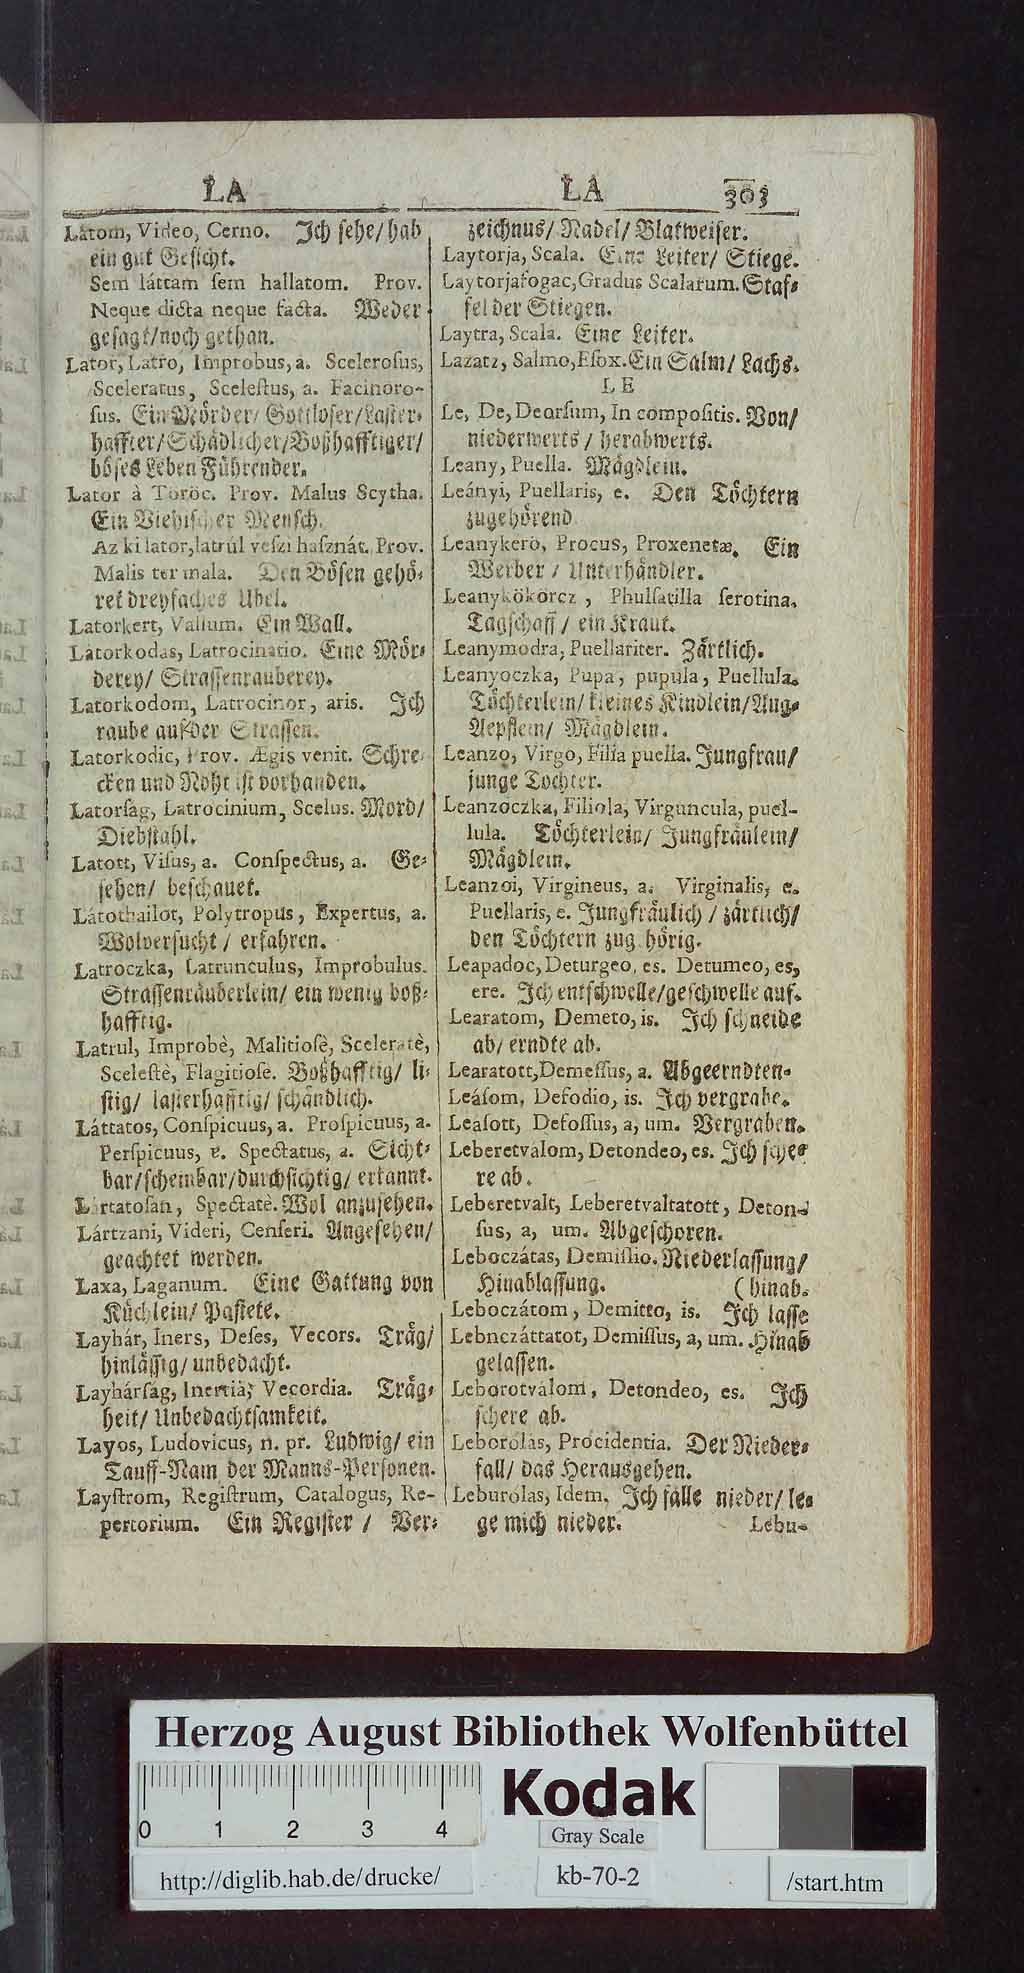 LA
Látom, Video, Cerno. Ich sehe/hab
ein gut Gesicht.
Sem láttam sem hallatom. Prov.
Neque dicta neque facta. Weder
gesagt/noch gethan.
Lator, Latro, Improbus, a. Scelerosus,
Sceleratus, Scelestus, a. Facinoro-
sus. Ein Mörder/Gottloser/Laster-
haffter/Schädlicher/Boßhafftiger/
böses Leben Führender.
Lator à Töröc. Prov. Malus Scytha.
Ein Viehischer Mensch.
Az ki lator, latrúl veszi hasznát. Prov.
Malis ter mala. Den Bösen gehö-
ret dreyfaches Ubel.
Latorkert, Vallum. Ein Wall.
Látorkodas, Latrocinatio. Eine Mör-
derey/ Strassenrauberey.
Latorkodom, Latrocinor, aris. Ich
raube auf der Strassen.
Latorkodic, Prov. Ægis venit. Schre-
cken und Noht ist vorhanden.
Latorság, Latrocinium, Scelus. Mord/
Diebstahl.
Latott, Visus, a. Conspectus, a. Ge-
sehen/ beschauet.
Látothailot, Polytropus, Expertus, a.
Wolversucht/ erfahren.
Latroczka, Latrunculus, Improbulus.
Strassenräuberlein/ ein wenig boß-
hafftig.
Latrul, Improbè, Malitiosè, Sceleratè,
Scelestè, Flagitiose. Boßhafftig/ li-
stig/ lasterhafftig/ schändlich.
Láttatos, Conspicuus, a. Prospicuus, a.
Perspicuus, a. Spectatus, a. Sicht-
bar/scheinbar/durchsichtig/ erkannt.
Lártatosan, Spectatè. Wol anzusehen.
Lártzani, Videri, Censeri. Angesehen/
geachtet werden.
Laxa, Laganum. Eine Gattung von
Küchlein/ Pastete.
Layhár, Iners, Deses, Vecors. Träg/
hinlässig/ unbedacht.
Layhársag, Inertia, Vecordia. Träg-
heit/ Unbedachtsamkeit.
Layos, Ludovicus, n. pr. Ludwig/ ein
Tauff-Nam der Manns-Personen.
Laystrom, Registrum, Catalogus, Re-
pertorium. Ein Register / Ver-
LA 303
zeichnus/ Nadel/ Blatweiser.
Laytorja, Scala. Eine Leiter/ Stiege.
Laytorjafogac, Gradus Scalarum. Staf-
fel der Stiegen.
Laytra, Scala. Eine Leiter.
Lazatz, Salmo, Esox. Ein Salm/ Lachs.
LE
Le, De, Deorsum, In compositis. Von/
niederwerts / herabwerts.
Leany, Puella. Mägdlein.
Leányi, Puellaris, e. Den Töchtern
zugehörend
Leanykerö, Procus, Proxenetæ. Ein
Werber / Unterhändler.
Leanykökörcz, Phulsatilla serotina.
Tagschaff/ ein Kraut.
Leanymodra, Puellariter. Zärtlich.
Leanyoczka, Pupa, pupula, Puellula.
Töchterlein/ kleines Kindlein/Aug-
Aepflein/ Mägdlein.
Leanzo, Virgo, Filia puella. Jungfrau/
junge Tochter.
Leanzoczka, Filiola, Virguncula, puel-
lula. Töchterlein/ Jungfräulein/
Mägdlein.
Leanzoi, Virgineus, a. Virginalis, e.
Puellaris, e. Jungfräulich/ zärtlich/
den Töchtern zug hörig.
Leapadoc, Deturgeo, es. Detumeo, es,
ere. Ich entschwelle/geschwelle auf.
Learatom, Demeto, is. Ich schneide
ab/ erndte ab.
Learatott, Demessus, a. Abgeerndten.
Leásom, Defodio, is. Ich vergrabe.
Leasott, Defossus, a, um. Vergraben.
Leberetvalom, Detondeo, es. Ich sche-
re ab.
Leberetvalt, Leberetvaltatott, Deton-
sus, a, um. Abgeschoren.
Leboczátas, Demissio. Niederlassung/
Hinablassung. (hinab.
Leboczátom, Demitto, is. Ich lasse
Lebnczáttatot, Demissus, a, um. Hinab
gelassen.
Leborotválom, Detondeo, es. Ich
schere ab.
Leborolás, Procidentia. Der Nieder-
fall/ das Herausgehen.
Leburolas, Idem. Ich falle nieder/ le-
ge mich nieder.
Lebu-
Herzog August Bibliothek Wolfenbüttel
0 1 2 3 4
Kodak
Gray Scale
http://diglib.hab.de/drucke/
kb-70-2
/start.htm